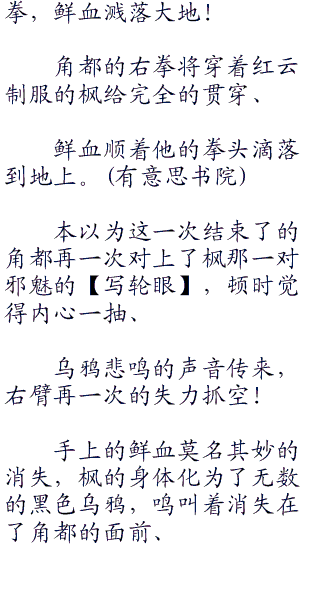 拳，鲜血溅落大地！
角都的右拳将穿着红云
制服的枫给完全的贯穿、
鲜血顺着他的拳头滴落
到地上。(有意思书院)
本以为这一次结束了的
角都再一次对上了枫那一对
邪魅的【写轮眼】，顿时觉
得内心一抽、
乌鸦悲鸣的声音传来，
右臂再一次的失力抓空！
手上的鲜血莫名其妙的
消失，枫的身体化为了无数
的黑色乌鸦，鸣叫着消失在
了角都的面前、